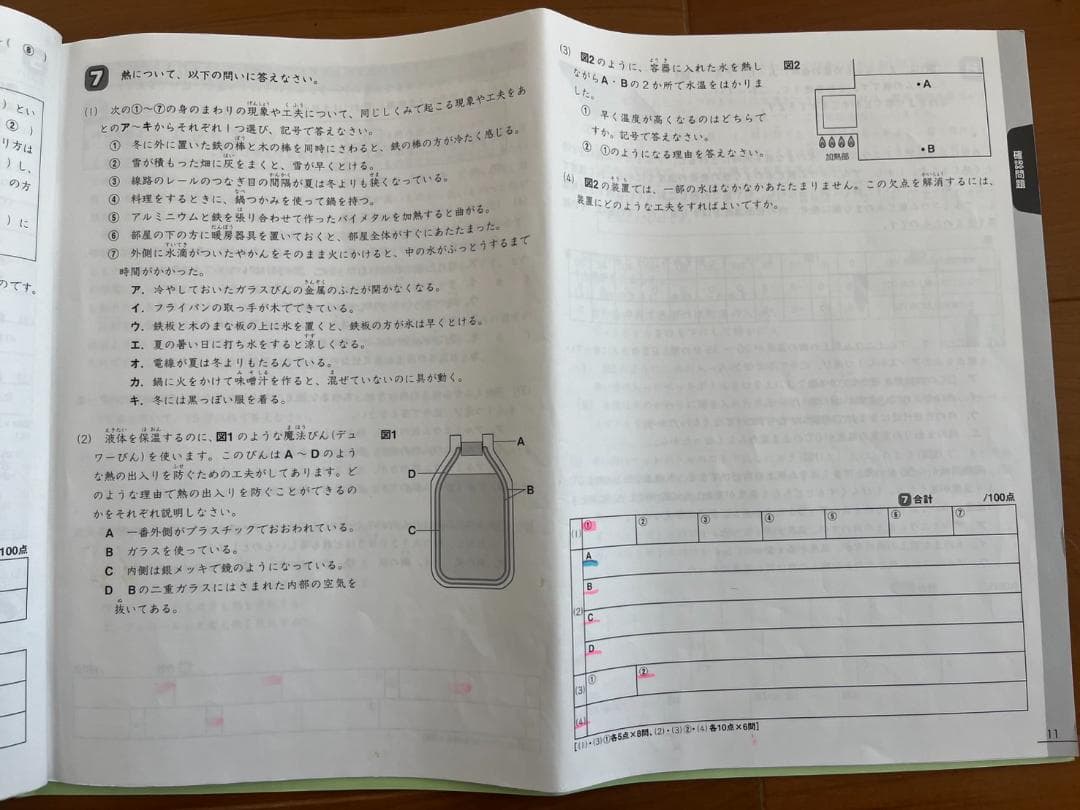 ⑧ )
) とい
② )
り方は
) し、
の方
) に
のです。
100点
7 熱について、以下の問いに答えなさい。
(1) 次の①〜⑦の身のまわりの現象や工夫について、同じしくみで起こる現象や工夫をあ
とのア〜キからそれぞれ1つ選び、記号で答えなさい。
① 冬に外に置いた鉄の棒と木の棒を同時にさわると、鉄の棒の方が冷たく感じる。
② 雪が積もった畑に灰をまくと、雪が早くとける。
③ 線路のレールのつなぎ目の間隔が夏は冬よりも狭くなっている。
④ 料理をするときに、鍋つかみを使って鍋を持つ。
⑤ アルミニウムと鉄を張り合わせて作ったバイメタルを加熱すると曲がる。
⑥ 部屋の下の方に暖房器具を置いておくと、部屋全体がすぐにあたたまった。
⑦ 外側に水滴がついたやかんをそのまま火にかけると、中の水がふっとうするまで
時間がかかった。
ア. 冷やしておいたガラスびんの金属のふたが開かなくなる。
イ. フライパンの取っ手が木でできている。
ウ. 鉄板と木のまな板の上に氷を置くと、鉄板の方が氷は早くとける。
エ. 夏の暑い日に打ち水をすると涼しくなる。
オ. 電線が夏は冬よりもたるんでいる。
カ. 鍋に火をかけて味噌汁を作ると、混ぜていないのに具が動く。
キ. 冬には黒っぽい服を着る。
(2) 液体を保温するのに、図1のような魔法びん(デュ
ワーびん)を使います。このびんはA〜Dのよう
な熱の出入りを防ぐための工夫がしてあります。ど
のような理由で熱の出入りを防ぐことができるの
かをそれぞれ説明しなさい。
A 一番外側がプラスチックでおおわれている。
B ガラスを使っている。
C 内側は銀メッキで鏡のようになっている。
D Bの二重ガラスにはさまれた内部の空気を
抜いてある。
図1
A
D
B
C
(3) 図2のように、容器に入れた水を熱し
ながらA・Bの2か所で水温をはかりま
した。
① 早く温度が高くなるのはどちらで
すか。記号で答えなさい。
② ①のようになる理由を答えなさい。
図2
A
B
加熱部
(4) 図2の装置では、一部の水はなかなかあたたまりません。この欠点を解消するには、
装置にどのような工夫をすればよいですか。
確認問題
7 合計 /100点
(1) ① ② ③ ④ ⑤ ⑥ ⑦
A
B
(2)
C
D
(3) ① ②
(4)
[(1)・(3)①各5点×8問、(2)・(3)②・(4)各10点×6問]
11